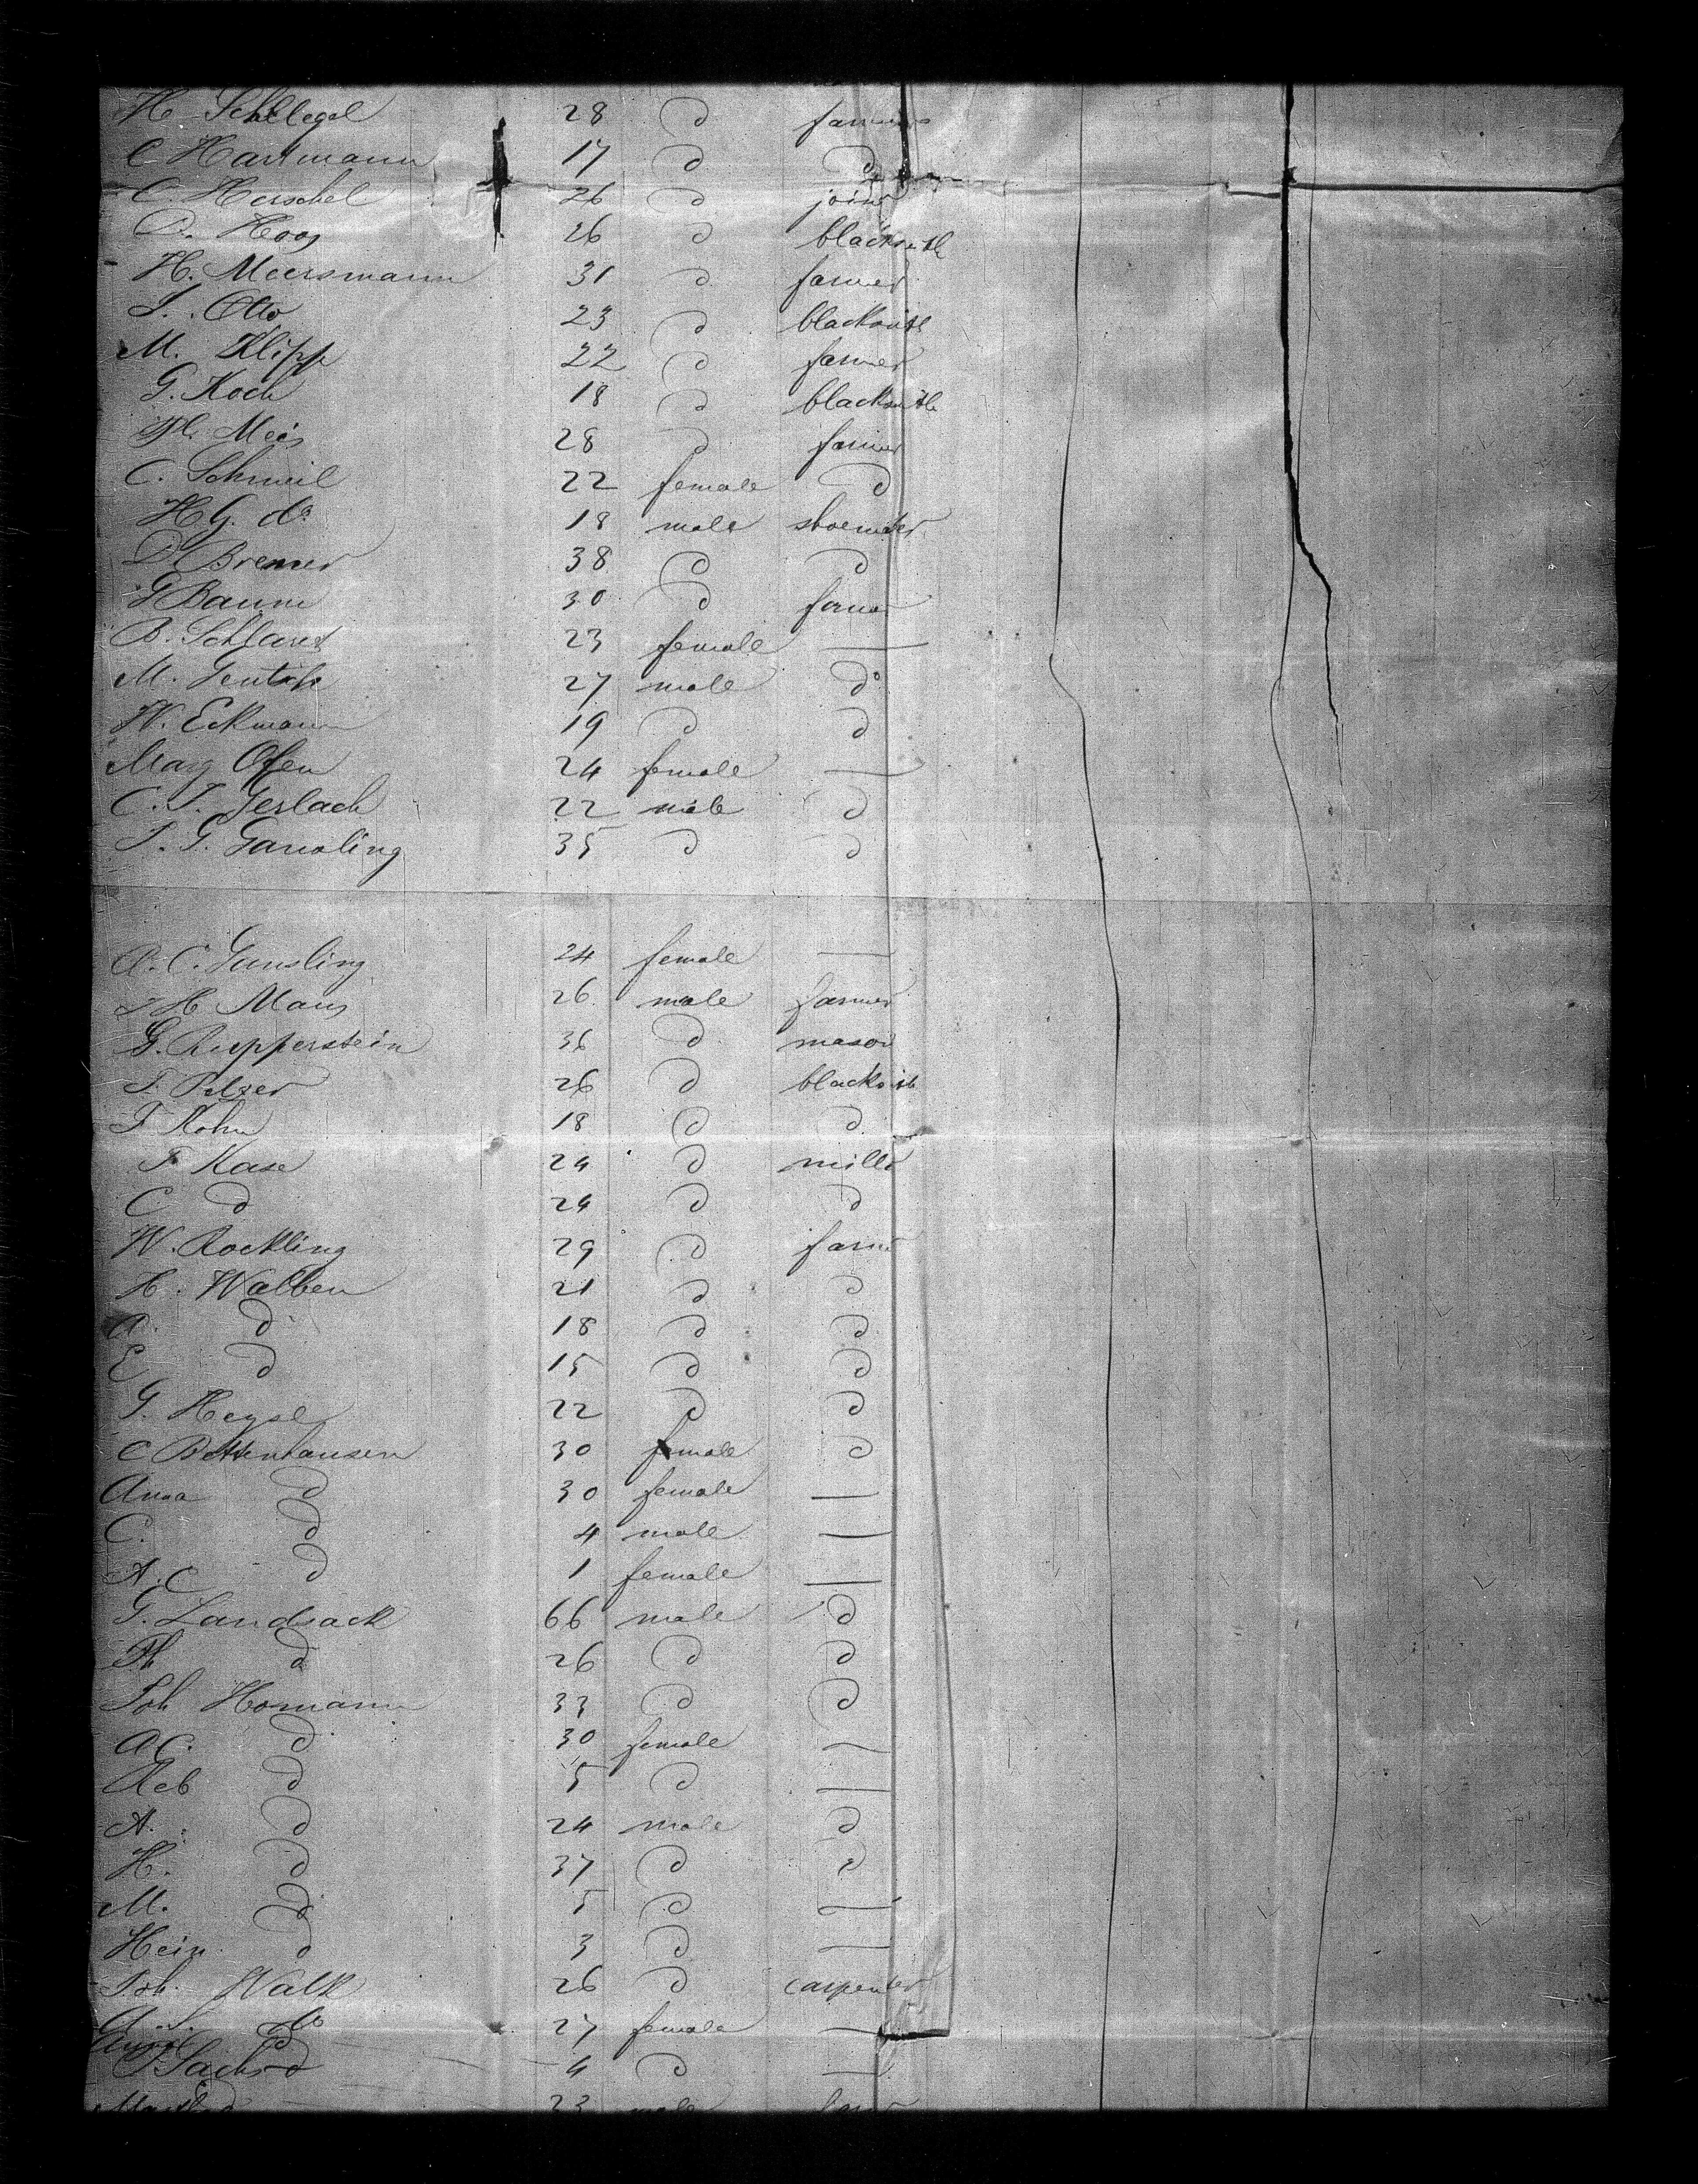 H Schlegel 28 d farmer
C Hartmann 17 d d
C. Herschel 26 d joiner
26 d blacksmith
H. Meersmann 31 d farmer
L. Otto 23 d blacksmith
M. Klipp 22 d farmer
G. Koch 18 d blacksmith
28 d farmer
C. Schmeil 22 female d
H G. do 18 male
D Bremer 38 d d
G Baum 30 d farmer
B. 23 female —
M. 27 male do
W. Eckmann 19 d d
Marg Ofen 24 female —
C. J. Gerlach 22 male d
35 d d
A. C. 24 female —
H Maus 26 male farmer
G. Ruepperstein 36 d mason
F. Pelzer 26 d blacksmith
F. Kohn 18 d d
F. Kase 24 d miller
C d 24 d d
W. Rockling 29 d farmer
H. Walben 21 d d
A. d 18 d d
E d 15 d d
G. 22 d d
C Bettenhausen 30 male d
Anna d 30 female —
C. d 4 male —
A. C d 1 female —
G. Landsack 66 male d
Ph d 26 d d
Joh Homann 33 d d
A C. d 30 female —
Reb d 5 d —
A. d 24 male d
H. d 37 d d
M. d 5 d —
Hein. d 3 d —
Joh. Walk 26 d carpenter
do 27 female —
Anna d 4 d —
Sachs 23 male farmer